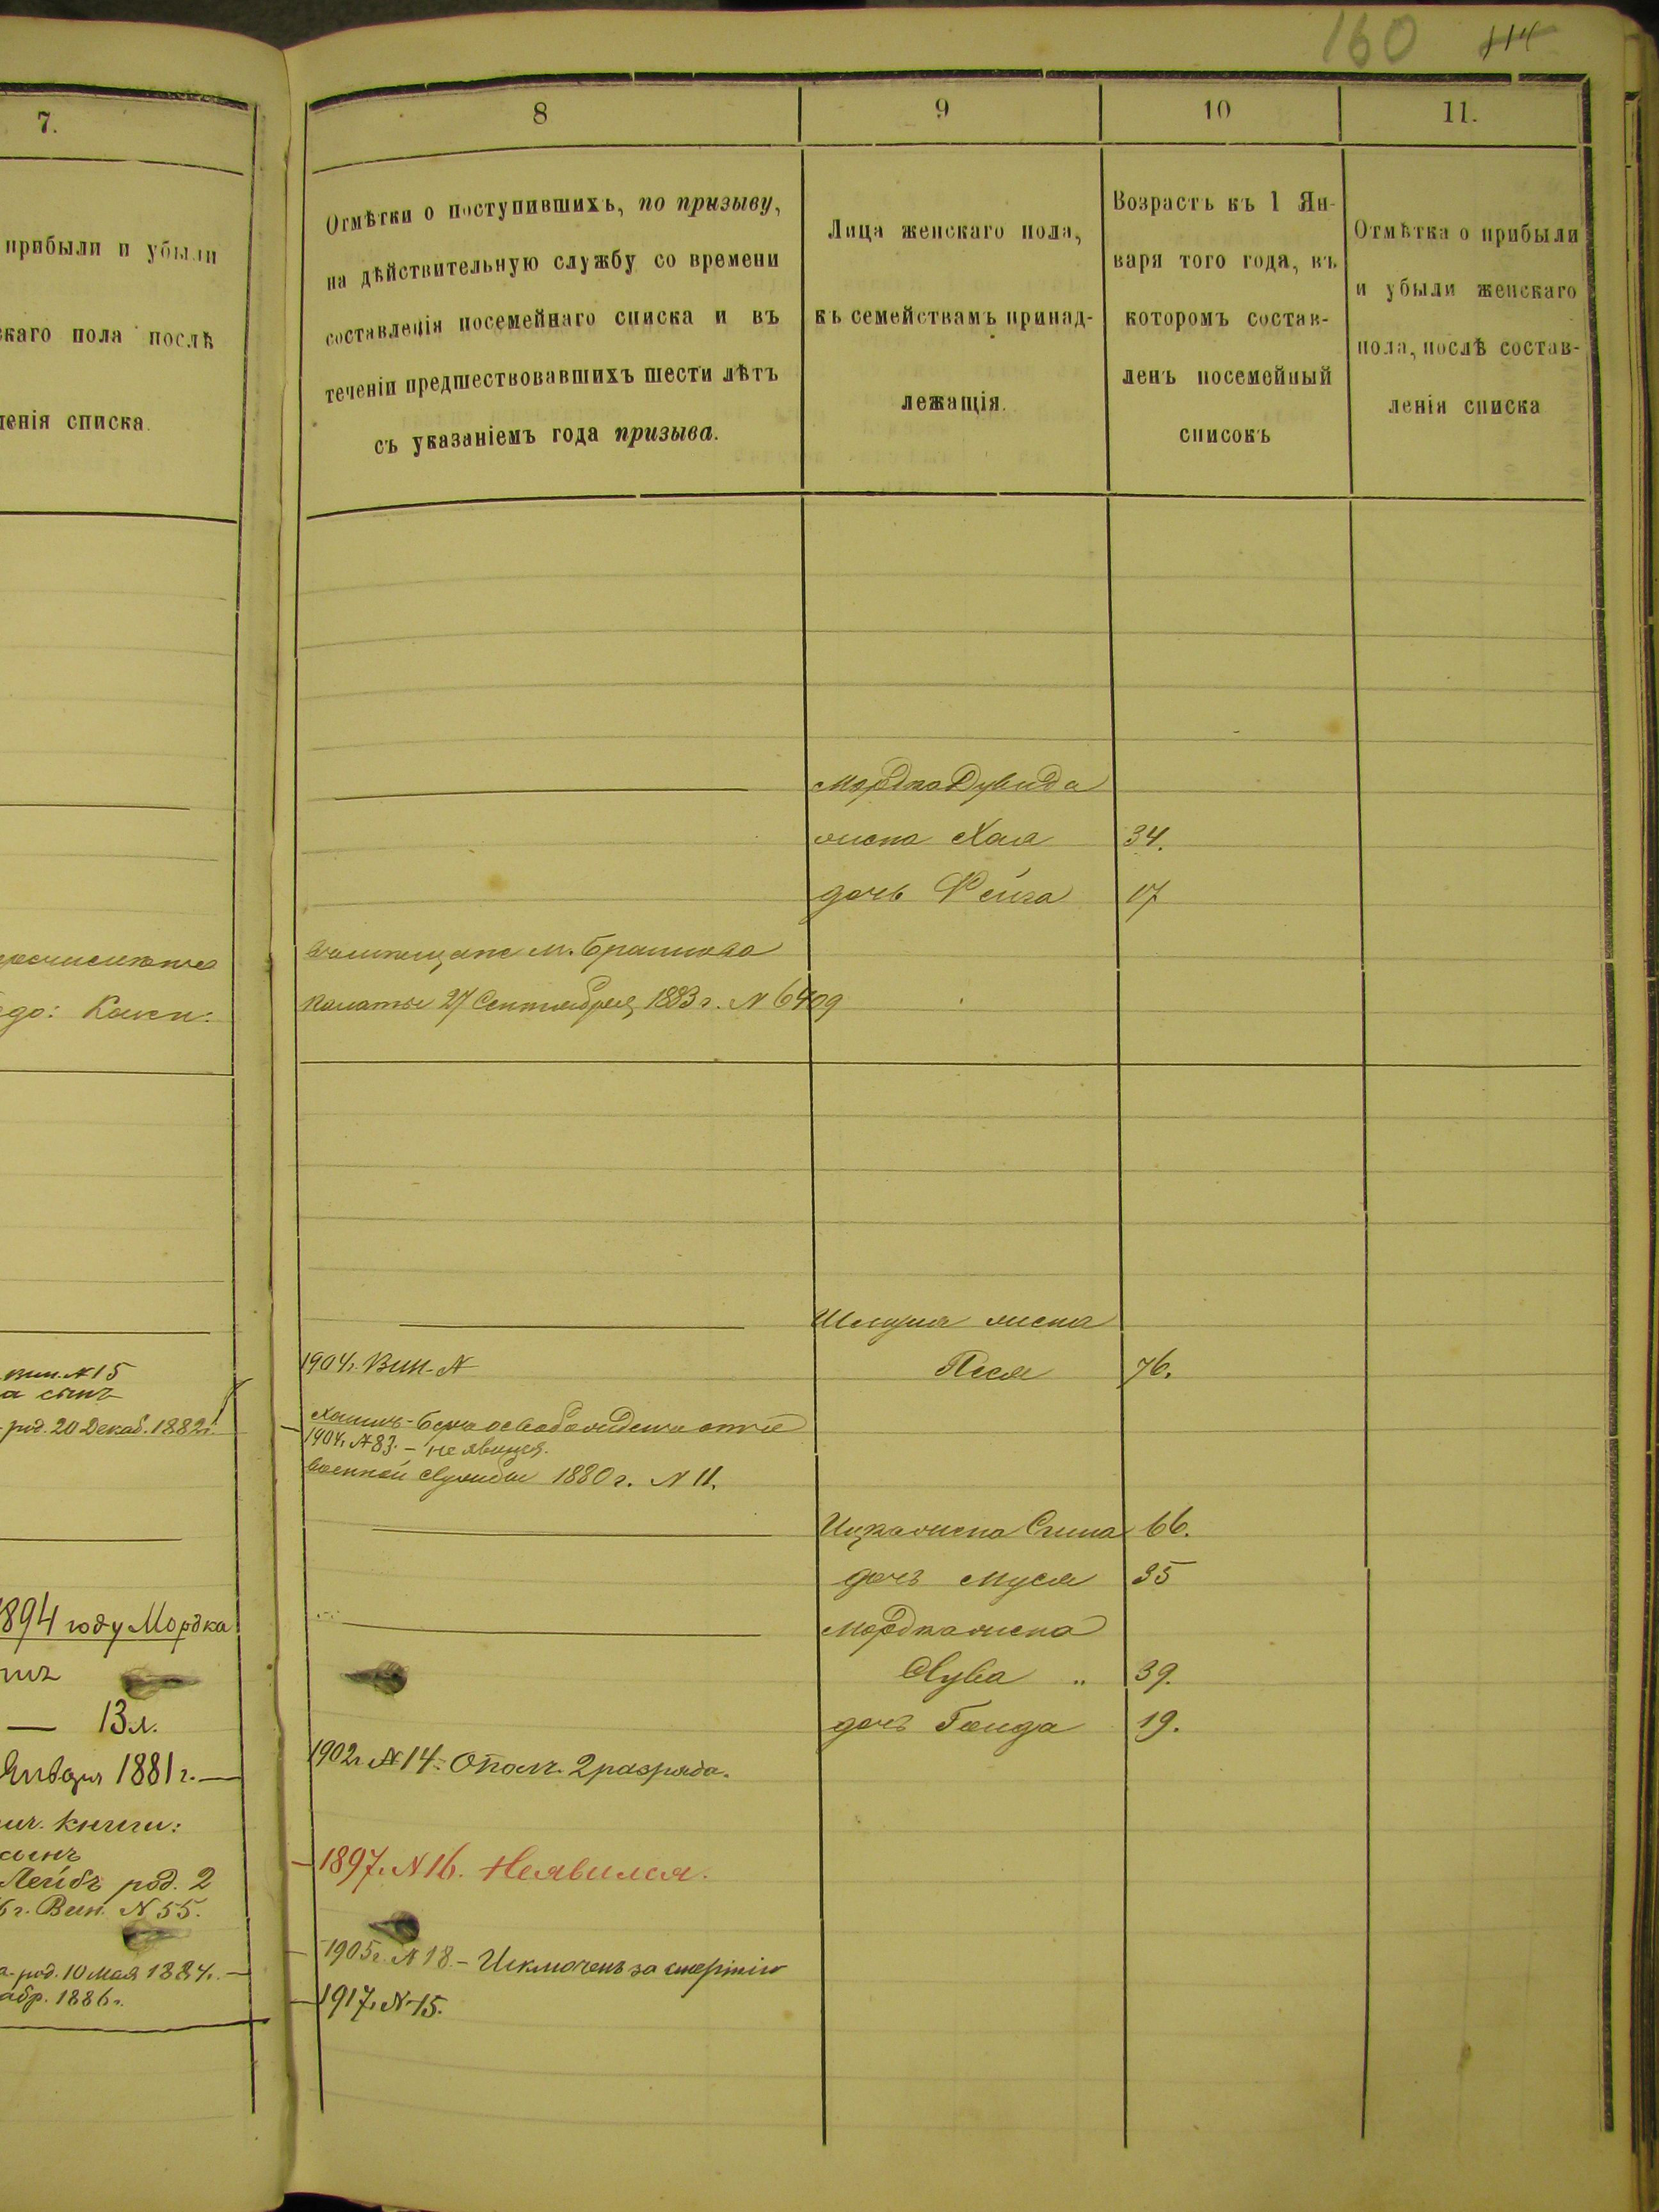 160 114
7.
8
9
10
11.
прибыли и убыли
скаго пола послѣ
ленія списка.
Отмѣтки о поступившихъ, по призыву,
на дѣйствительную службу со времени
составленія посемейнаго списка и въ
теченіи предшествовавшихъ шести лѣтъ
съ указаніемъ года призыва.
Лица женскаго пола,
къ семействамъ принад-
лежащія.
Возрастъ къ 1 Ян-
варя того года, въ
которомъ состав-
ленъ посемейный
списокъ
Отмѣтка о прибыли
и убыли женскаго
пола, послѣ состав-
ленія списка
Мордка Дувида
жена Хая 34.
дочь Фейга 17
м. Браилова
до: Каен:
палаты 27 Сентября 1883 г. N 6409
Шлиума жена
вин. N 15
1904 г. Вин. N
Песя 76.
а сынъ
род. 20 Декаб. 1882 г.
освобожденъ отъ
1904 г. N 83. – не явился.
военной службы 1880 г. N 11.
Ицка жена Сима 66.
дочь Муся 35
1894 году Мордка
Мордка жена
Хува „ 39.
— 13 л.
дочь Гольда 19.
1902 г. N 14: Ополч. 2 разряда.
Января 1881 г. —
книги:
сынъ
1897. N 16. Неявился.
Лейбъ род. 2
6 г. Вин. N 55.
1905 г. N 18 – Исключенъ за смертію
а- род. 10 Мая 1884 г. —
1917 г. N 15.
абр. 1886 г.